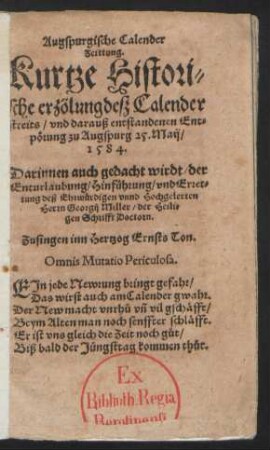 Augspurgische Calender
Zeittung.
Kurtze Histori-
sche erzölung deß Calender
streits / vnd darauß entstandenen Em-
pörung zu Augspurg 25. Maij /
1584.
Darinnen auch gedacht wirdt / der
Enturlaubung / Hinführung / vnd Erret-
tung deß Ehwürdigen vnnd Hochgelerten
Herrn Georgij Miller / der Heili-
gen Schrifft Doctorn.
Zusingen inn Hertzog Ernsts Ton.
Omnis Mutatio Periculosa.
EIn jede Newrung bringt gefahr /
Das wirst auch am Calender gwahr.
Der New macht vnrhů vñ vil gschäfft /
Beym Alten man noch senffter schläfft.
Er ist vns gleich die Zeit noch gůt /
Biß bald der Jüngsttag kommen thůt.
Ex
Biblioth. Regia
Berolinensi